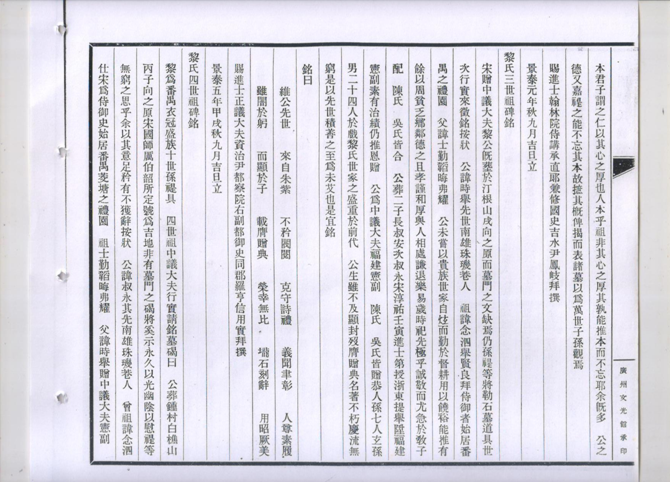 本君子謂之仁以其心之厚也人本乎祖非其心之厚其孰能推本而不忘耶余既多　公之
德又嘉禔之能不忘其本故摭其槪俾揭而表諸墓以為萬世子孫觀焉
賜進士翰林院侍講承道郎兼修國史吉水尹鳳岐拜撰
景泰元年秋九月吉旦立
黎氏三世祖碑銘
宋贈中議大夫黎公既塟於汀根山戌向之原而墓門之文缺焉仍孫禔等將勒石墓道具世
次行實來徵銘按狀　公諱時舉先世南雄珠璣巷人　祖諱念泗舉賢良拜侍御者始居番
禺之禮園　父諱士勤韜晦弗耀　公未嘗以貴族世家自炫而勤於督耕用以饒裕能推有
餘以周貧乏鄉鄰德之且孝謹和厚與人相處謙退樂易歲時祀先極乎誠敬而尤急於敎子
配　陳氏　吳氏皆合　公葬二子長叔安次叔永宋淳祐壬寅進士第授浙東提舉陞福建
憲副素有治績仍推恩贈　公為中議大夫福建憲副　陳氏　吳氏皆贈恭人孫七人玄孫
男二十四人於戲黎氏世家之盛重於前代　公生雖不及顯封歿膺贈典名著不朽慶流無
窮是以先世積善之至為未艾也是宜銘
銘曰
維公先世　來自朱紫　不矜閥閱　克守詩禮　義聞聿彰　人尊素履
雖闇於躬　而顯於子　載膺贈典　榮幸無比　瑞石渕辭　用昭厥美
賜進士正議大夫資治尹都察院右副都御史同郡羅亨信用實拜撰
景泰五年甲戌秋九月吉旦立
黎氏四世祖碑銘
黎為番禺衣冠盛族十世孫禔具　四世祖中議大夫行實請銘墓碣曰　公葬鍾村白樵山
丙子向之原宋國師厲伯韶所定號為吉地非有墓門之碣將奚示永久以光幽陰以慰禔等
無窮之思乎余以其意足矜有不獲辭按狀　公諱叔永其先南雄珠璣巷人　曾祖諱念泗
仕宋為侍御史始居番禺茭塘之禮園　祖士勤韜晦弗耀　父諱時舉贈中議大夫憲副
廣州文光館承印